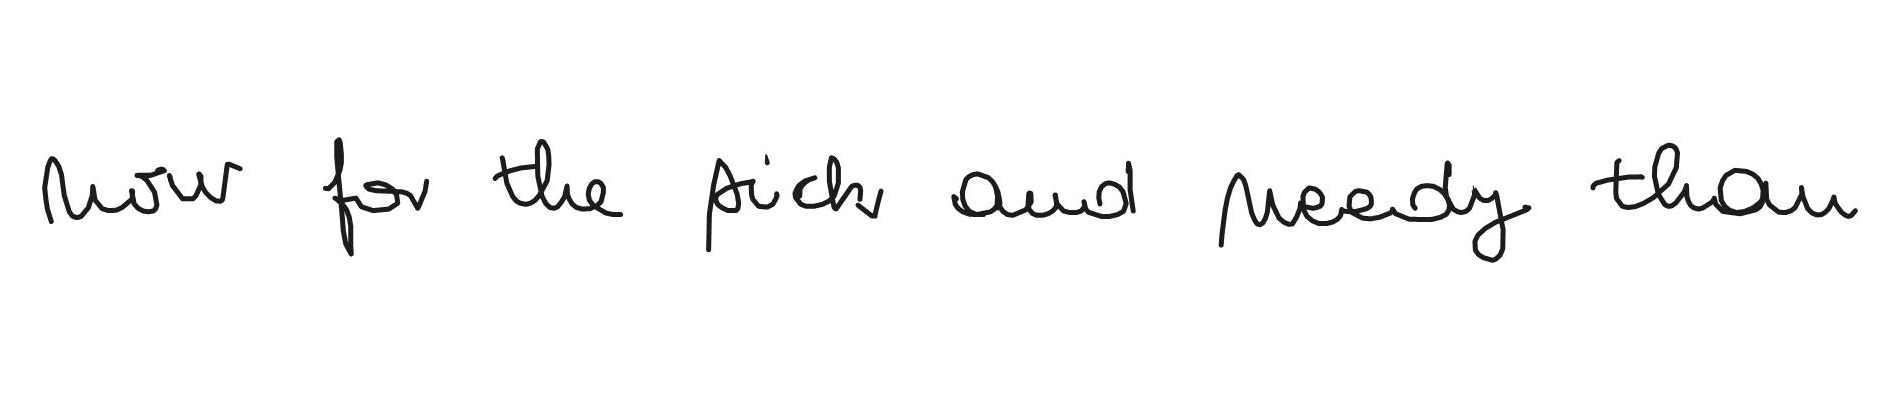 now for the sick and needy than